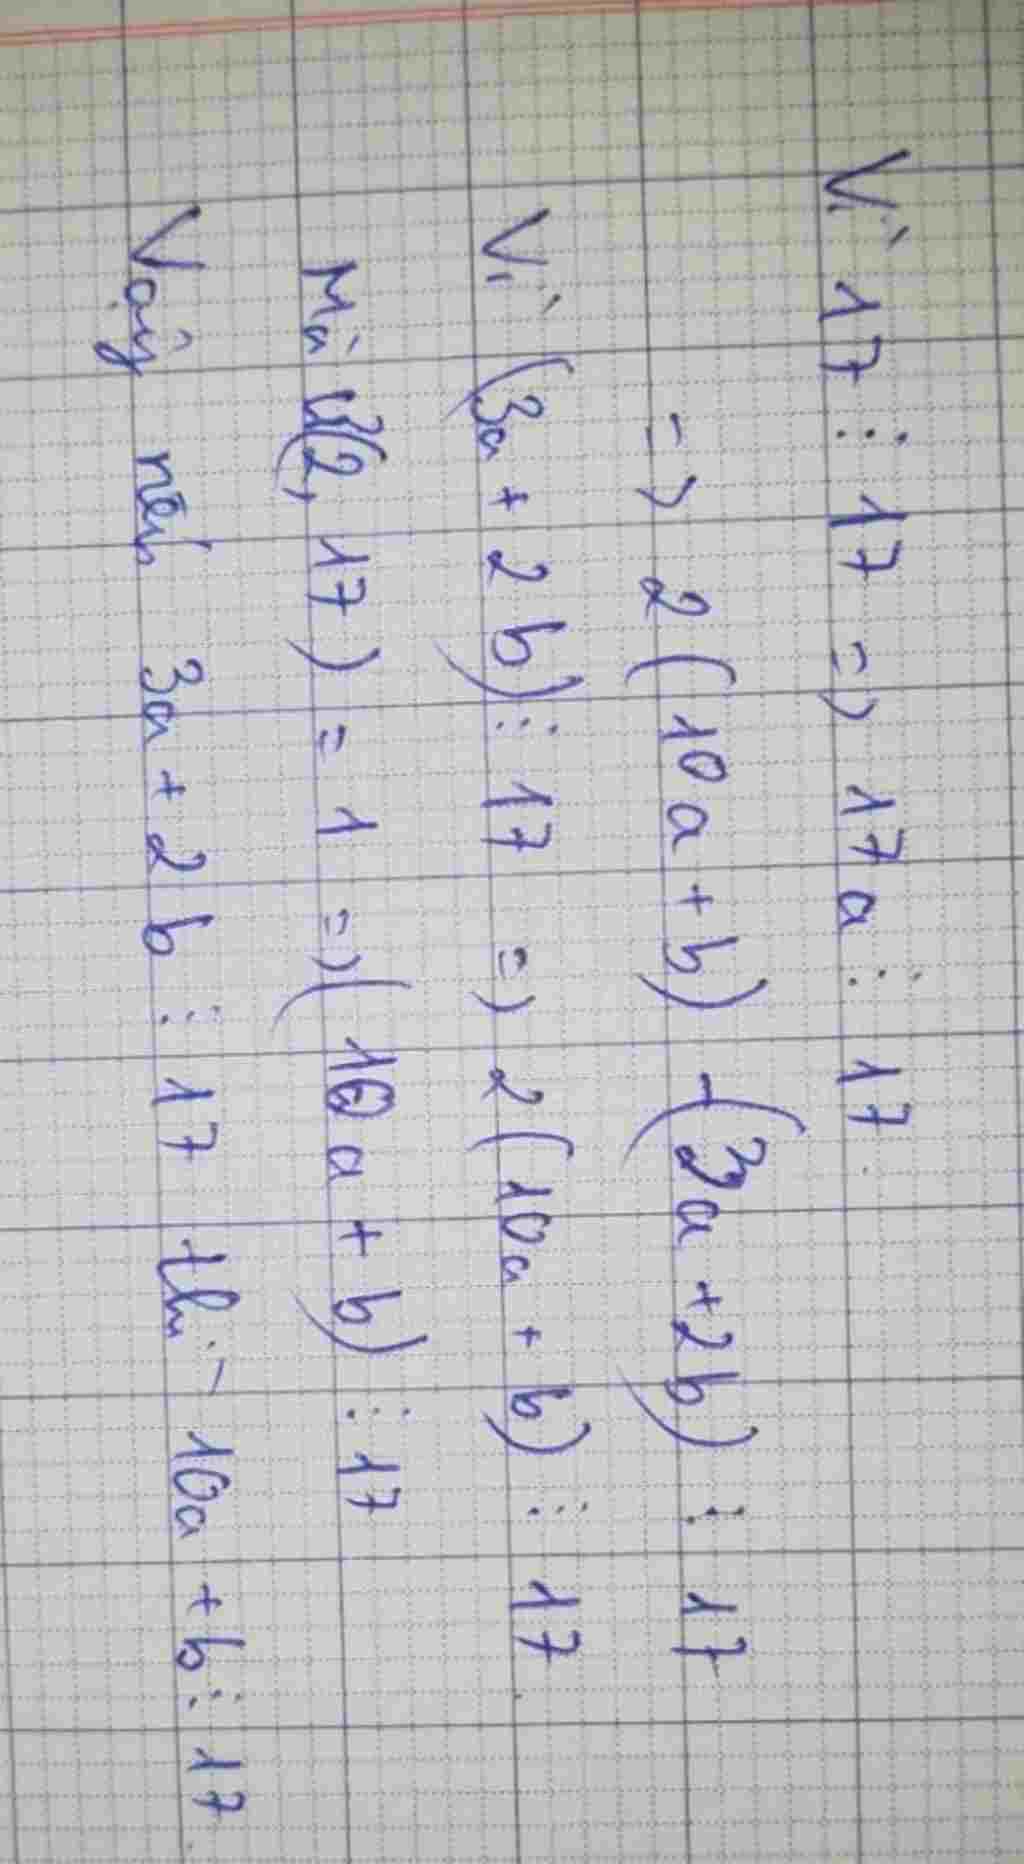 Vì 17 ⋮ 17 => 17a ⋮ 17
=> 2 (10a + b) - (3a + 2b) ⋮ 17
Vì (3a + 2b) ⋮ 17 => 2(10a + b) ⋮ 17
Mà (2, 17) = 1 => (10a + b) ⋮ 17
Vậy nếu 3a + 2b ⋮ 17 thì 10a + b ⋮ 17